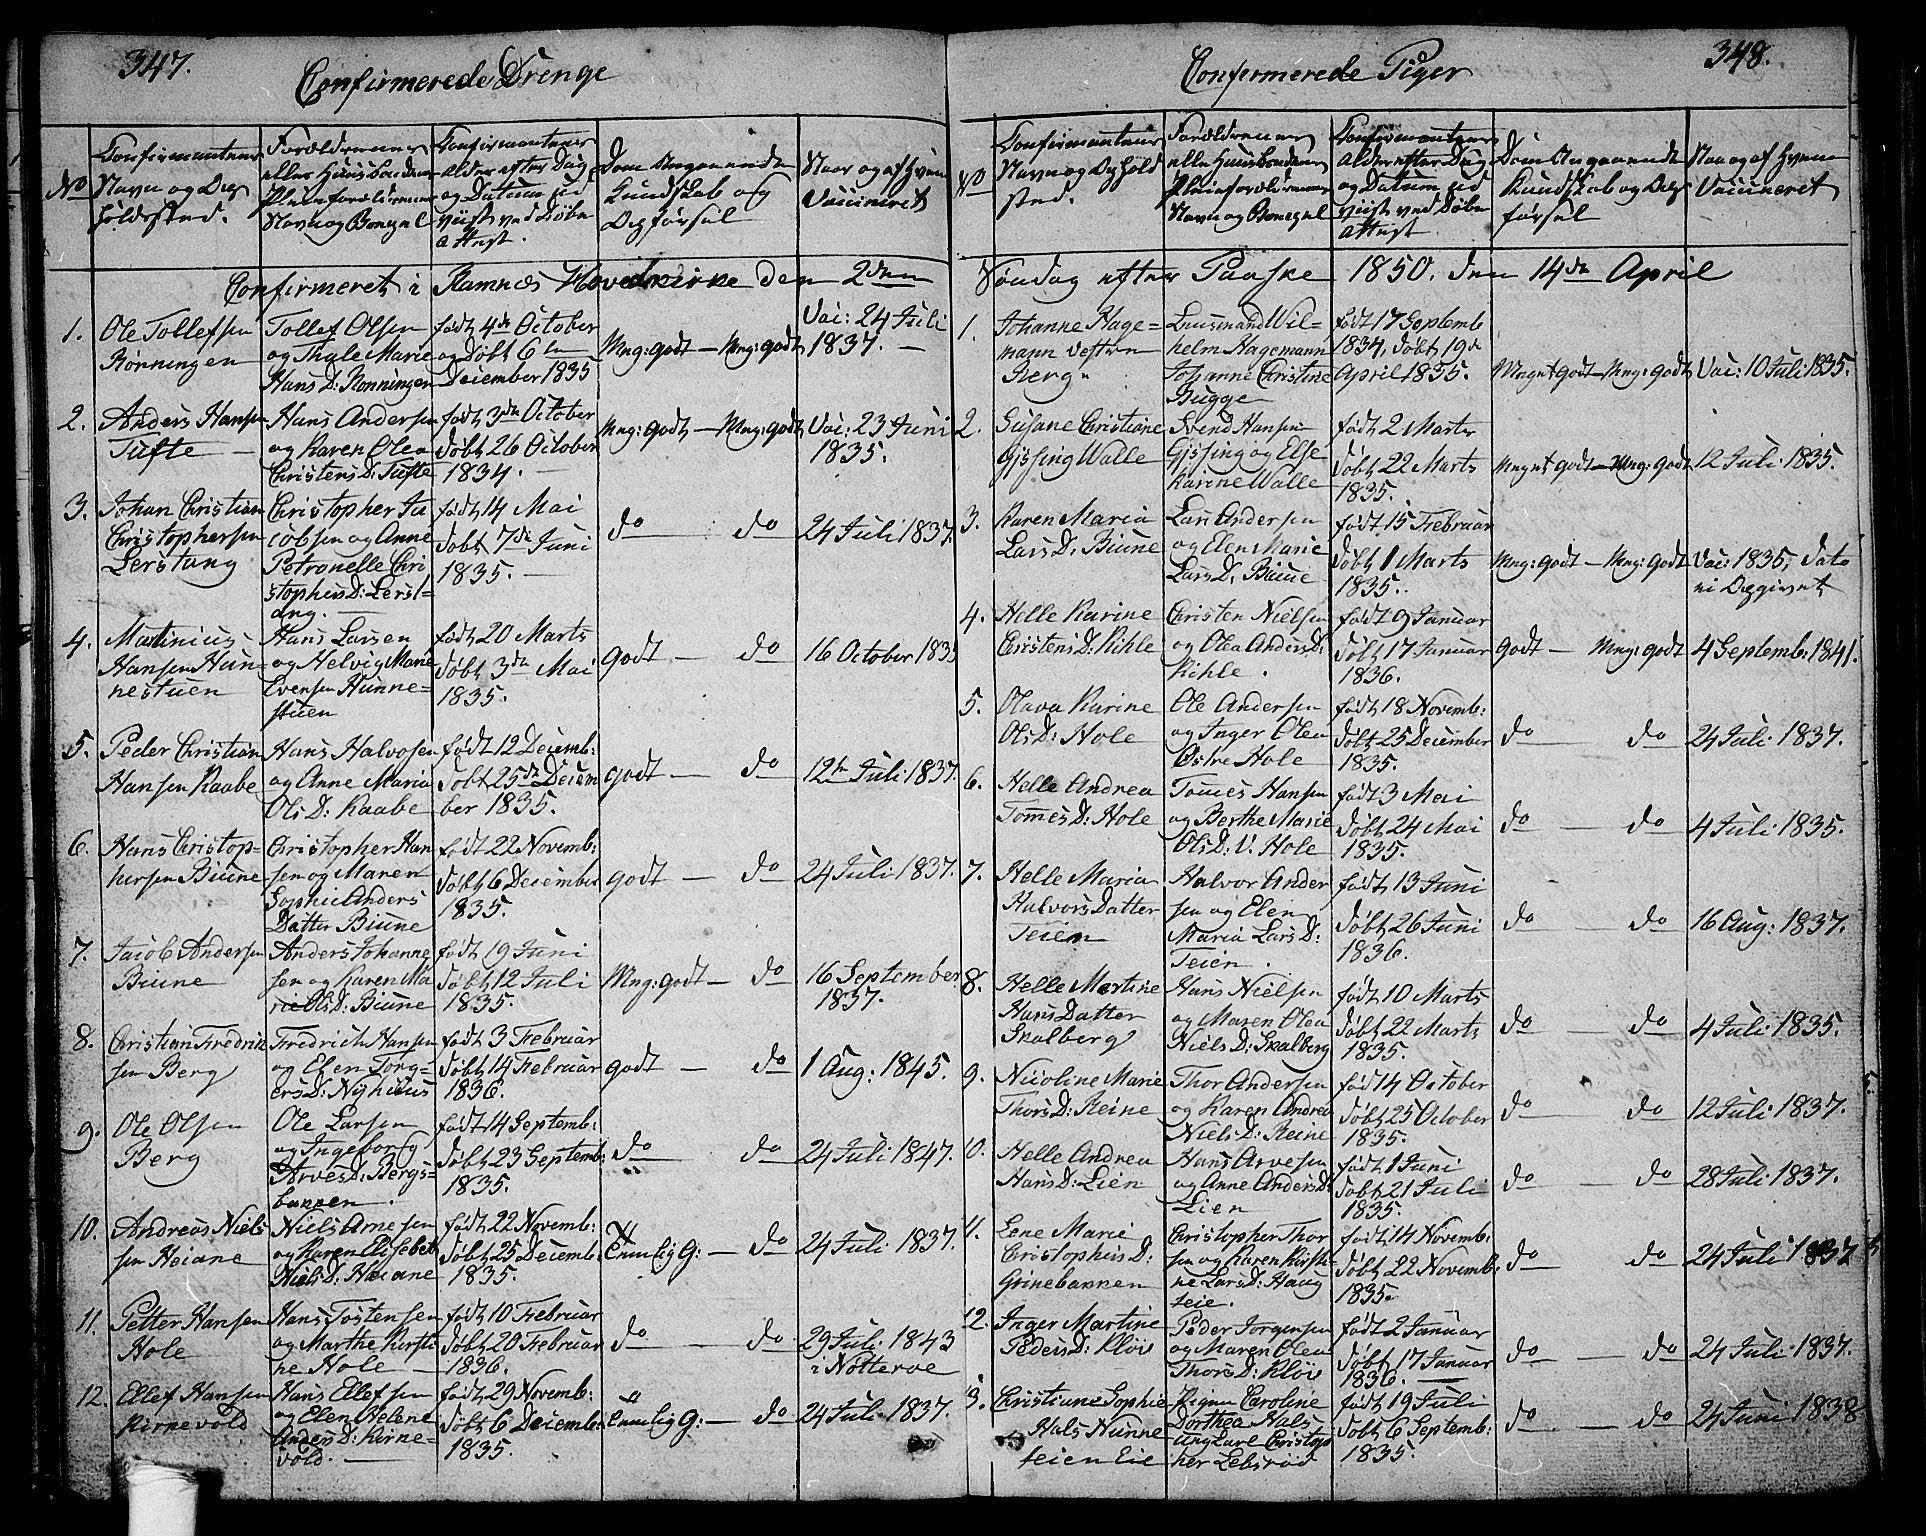 347.
Confirmerede Drenge
No
Confirmantens
Navn og Op
holdssted.
Forældrenes
eller Huusbondens
Pleieforældrenes
Navn og Bopæl
Confirmantens
Alder efter Dag
og Datum ud
viist ved Døbe
attest.
Dom Angaaende
Kundskab og
Opførsel
Naar og af hvem
Vaccineret
Confirmeret i Ramnæs Hovedkirke den 2den
1.
Ole Tollefsen
Rønningen
Tollef Olsen
og Thale Marie
Hans D: Rønningen
født 4de October
og Døbt 6te
December 1835
Mng: godt — Mng: godt
Vac: 24 Juli
1837. —
2.
Anders Hansen
Tufte —
Hans Andersen
og Karen Olea
Christens D: Tufte
født 3de October
døbt 26 October
1834. —
Mng: godt — Mng: godt
Vac: 23 Juni
1835.
3.
Johan Christian
Christophersen
Lerstang
Christopher Ja
cobsen og Anne
Petronelle Chri
stophers D: Lerst-
ang. —
født 14 Mai
døbt 7de Juni
1835. —
do do
24 Juli 1837
4.
Martinius
Hansen Hun-
nestuen
Hans Larsen
og Helvig Marie
Evensen Hunne-
stuen
født 20 Marts
døbt 3de Mai
1835.
godt — do
16 October 1835
5.
Peder Christian
Hansen Raabe
Hans Halvosen
og Anne Maria
Ols D: Raabe
født 12 Decemb:
døbt 25de Decem
ber 1835.
godt — do
12te Juli 1837.
6.
Hans Christop-
hersen Biune
Christopher Han
sen og Maren
Sophie Anders
Datter Biune
født 22 Novemb:
døbt 6 December
1835.
godt — do
24 Juli 1837.
7.
Jacob Andersen
Biune
Anders Johanne
sen og Karen Ma
rie Ols D: Biune
født 19 Juni
døbt 12 Juli
1835.
Mng: godt — do
16 September
1837.
8.
Christian Fredrik
sen Berg
Fredrich Hansen
og Elen Torg-
ers D: Nyhuus
født 3 Februar
døbt 14 Februar
1836.
godt — do
1 Aug: 1845.
9.
Ole Olsen
Berg
Ole Larsen
og Ingeborg
Arves D: Bergs-
bakken.
født 14 Septemb:
døbt 23 Septemb:
1835.
do do
24 Juli 1847.
10.
Andreas Niels
sen Heiane
Niels Arnesen
og Karen Elisebet
Niels D: Heiane
født 22 Novemb:
døbt 25 Decemb:
1835.
Temlig G: — do
24 Juli 1837.
11.
Petter Hansen
Hole
Hans Tostensen
og Marthe Kirsti
ne Hole —
født 10 Februar
døbt 20 Februar
1836.
do do
29 Juli 1843
i Nøtterøe
12.
Ellef Hansen
Kirnevold
Hans Ellefsen
og Elen Helene
Anders D: Kirne-
vold. —
født 29 Novemb:
døbt 6 Decemb:
1835.
Temlig G: — do
24 Juli 1837.
348.
Confirmerede Piger
No
Confirmantens
Navn og Ophold
sted.
Forældrenes
eller Huusbondens
Pleieforældrenes
Navn og Bopæl
Confirmantens
Alder efter Dag
og Datum ud
viist ved Døbe
Attest
Dom Angaaende
Kundskab og Op
førsel
Naar og af Hvem
Vaccineret
Søndag efter Paaske 1850. den 14de April
1.
Johanne Hage-
mann Vestre
Berg.
Huusmand Wil-
helm Hagemann
Johanne Christine
Bugge
født 17 Septemb
1834, døbt 19de
April 1835.
Mgnt godt — Mng: godt
Vac: 10 Juli 1835.
2.
Susane Christiane
Gjssing Walle
Svend Hansen
Gjssing og Else
Karine Walle
født 2 Marts
døbt 22 Marts
1835.
Mgnt godt — Mng: godt
12 Juli 1835.
3.
Karen Maria
Lars D: Biune
Lars Andersen
og Elen Marie
Lars D: Biune
født 15 Februar
døbt 1 Marts
1835.
Mng: godt — Mng: godt
Vac: 1835, dato
ei Opgivet
4.
Helle Karine
Cristens D: Kihle
Christen Nielsen
og Olea Anders D:
Kihle.
født 9 Januar
døbt 17 Januar
1836.
godt — Mng: godt
4 Septemb: 1841.
5.
Olava Karine
Ols D: Hole
Ole Andersen
og Inger Olea
Østre Hole
født 18 Novemb:
døbt 25 December
1835.
do do
24 Juli 1837.
6.
Helle Andrea
Tomes D: Hole
Tomes Hansen
og Berthe Marie
Ols D: V. Hole
født 3 Mai
døbt 24 Mai
1835.
do do
4 Juli 1835.
7.
Helle Maria
Halvors Datter
Teien
Halvor Ander
sen og Elen
Maria Lars D:
Teien.
født 13 Juni
døbt 26 Juni
1836.
do do
16 Aug: 1837.
8.
Helle Martine
Hans Datter
Skalberg
Hans Nielsen
og Maren Olea
Niels D: Skalberg
født 10 Marts
døbt 22 Marts
1835.
do do
4 Juli 1835.
9.
Nicoline Marie
Thors D: Reine
Thor Andersen
og Karen Andrea
Niels D: Reine
født 14 October
døbt 25 October
1835.
do do
12 Juli 1837.
10.
Helle Andrea
Hans D: Lien
Hans Arvesen
og Anne Anders D:
Lien
født 1 Juni
døbt 21 Juli
1835.
do do
28 Juli 1837.
11.
Lene Marie
Christophers D:
Grinebakken
Christopher Thor
sen og Karen Kirsti-
ne Lars D: Haug
teie.
født 14 Novemb:
døbt 22 Novemb:
1835.
do do
24 Juli 1837
12.
Inger Martine
Peders D: Kløv
Peder Jorgensen
og Maren Olea
Thors D: Kløv
født 2 Januar
døbt 17 Januar
1836. —
do do
24 Juli 1837.
3.
Christiane Sophie
Hals Hunne
teien Eie
Pigen Caroline
Dorthea Hals
Ungkarl Christop
her Lebsrød
født 19 Juli
døbt 6 Septemb:
1835.
do do
24 Juni 1838